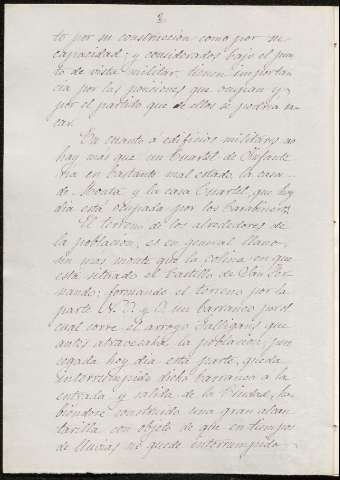 8.
to por su construccion como por su
capacidad; y considerados bajo el pun
to de vista militar, tienen importan
cia por las posiciones que ocupan y
por el partido que de ellos se podria sa
car.
En cuanto á edificios militares no
hay mas que un Cuartel de Infante
ria en bastante mal estado, la casa
de Monta y la casa Cuartel, que hoy
dia está ocupada por los Carabineros.
El terreno de los alrededores de
la poblacion, es en general llano,
sin mas monte que la colina en que
está situado el Castillo de San Fer
nando; formando el terreno por la
parte N. O. y O. un barranco por el
cual corre el arroyo Galligans que
antes atravesaba la poblacion, pero
cegada hoy dia esta parte, queda
interrumpido dicho barranco a la
entrada y salida de la Ciudad, ha
biendose construido una gran alcan
tarilla con objeto de que en tiempos
de lluvias no quede interrumpido